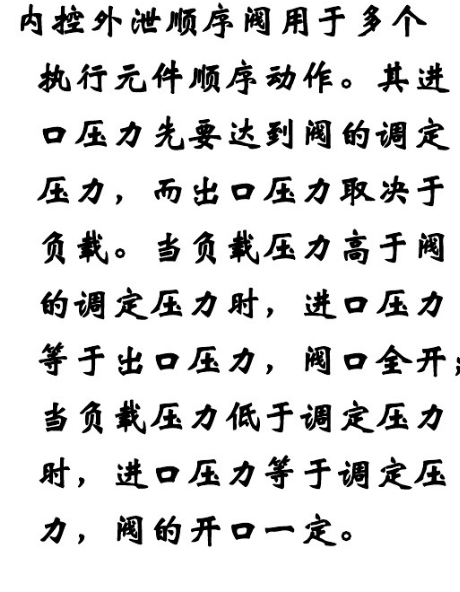 内控外泄顺序阀用于多个
执行元件顺序动作。其进
口压力先要达到阀的调定
压力，而出口压力取决于
负载。当负载压力高于阀
的调定压力时，进口压力
等于出口压力，阀口全开；
当负载压力低于调定压力
时，进口压力等于调定压
力，阀的开口一定。